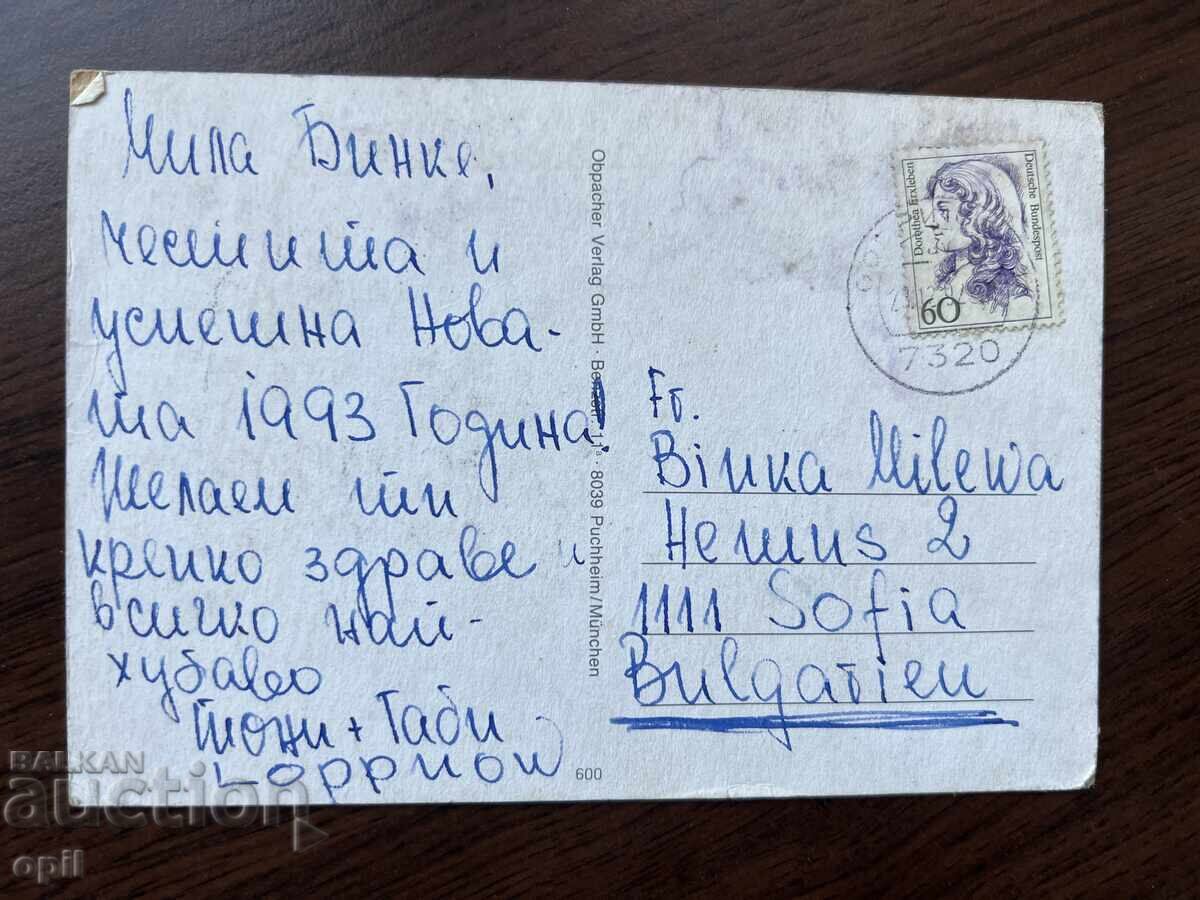 Мила Бинке,
честита и
успешна Нова-
та 1993 Година!
Желаем ти
крепко здраве и
всичко най-
хубаво
Тони + Габи
Obpacher Verlag GmbH · 11a · 8039 Puchheim/München
600
Deutsche Bundespost
Dorothea Erxleben
60
7320
Fr.
Binka Milewa
Hemus 2
1111 Sofia
Bulgarien
BALKAN
auction
opil